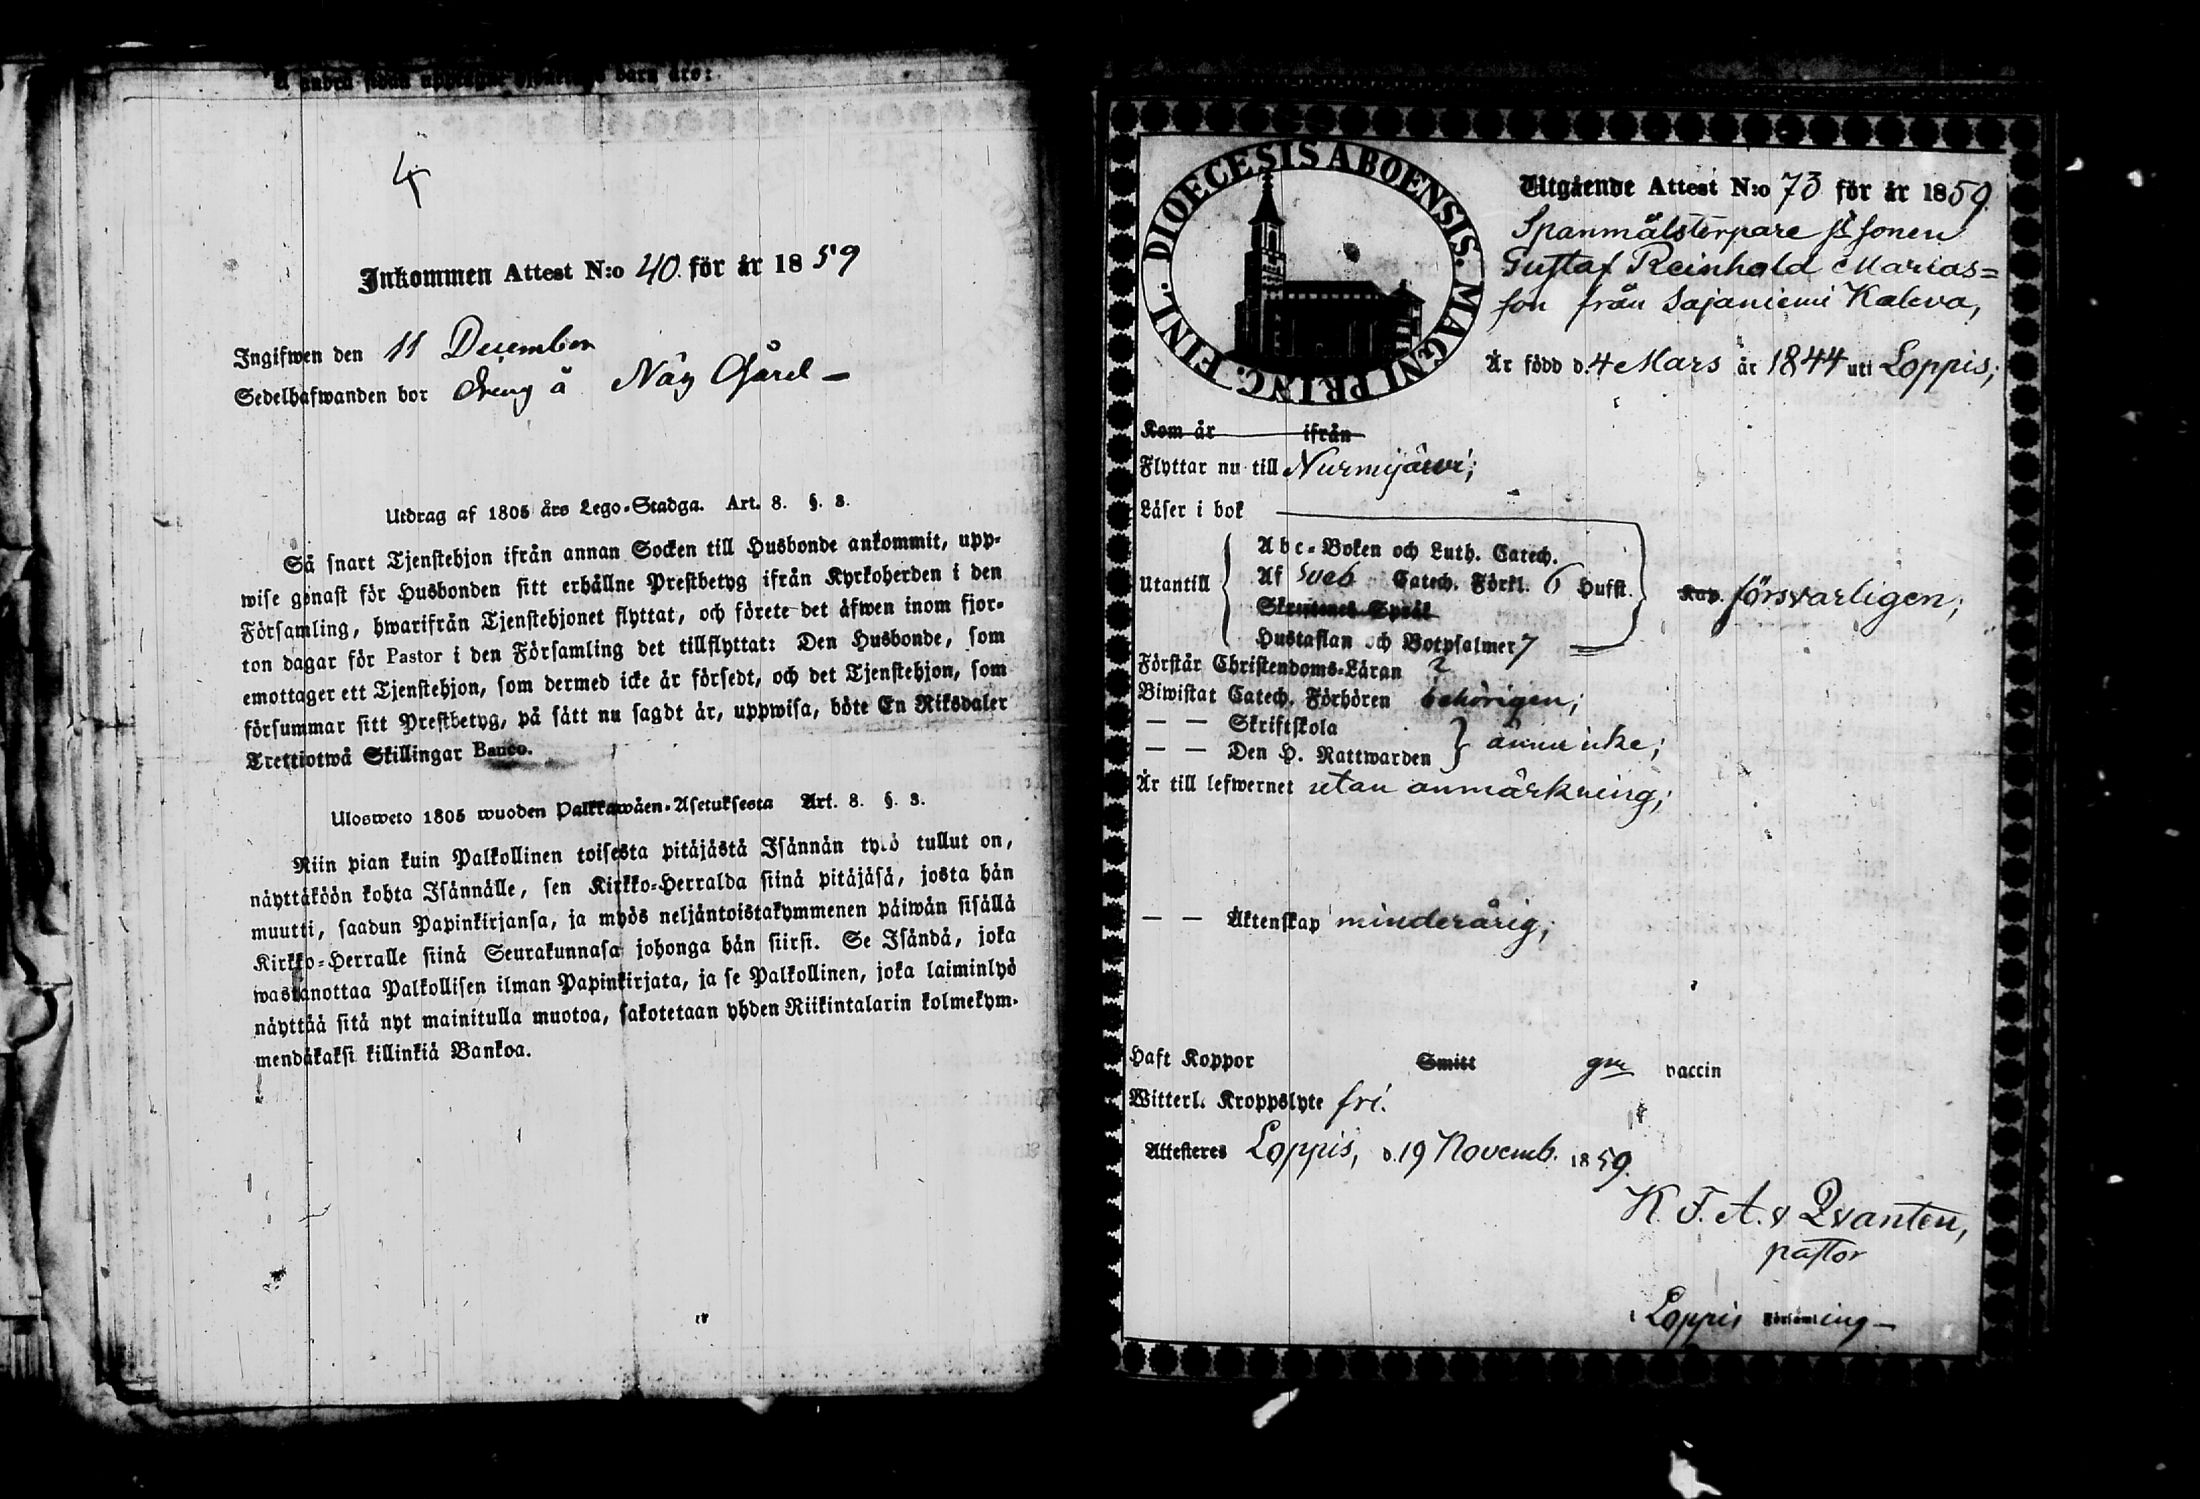 Inkommen Attest N:o 40. för år 1859
Ingifwen den 11 December
Sedelhafwanden bor dreng å Näs Gård —
Utdrag af 1805 års Lego-Stadga. Art. 8. §. 3.
Så snart Tjenstehjon ifrån annan Socken till Husbonde ankommit, upp-
wise genast för Husbonden sitt erhållne Prestbetyg ifrån Kyrkoherden i den
Församling, hwarifrån Tjenstehjonet flyttat, och förete det äfwen inom fjor-
ton dagar för Pastor i den Församling det tillflyttat: Den Husbonde, som
emottager ett Tjenstehjon, som dermed icke är försedt, och det Tjenstehjon, som
försummar sitt Prestbetyg, på sätt nu sagdt är, uppwisa, böte En Riksdaler
Trettiotwå Skillingar Banco.
Ulosweto 1805 wuoden Palkkawäen-Asetuksesta Art. 8. §. 3.
Niin pian kuin Palkollinen toisesta pitäjästä Isännän tykö tullut on,
näyttäköön kohta Isännälle, sen Kirkko-Herralda siinä pitäjäsä, josta hän
muutti, saadun Papinkirjansa, ja myös neljäntoistakymmenen päiwän sisällä
Kirkko-Herralle siinä Seurakunnasa johonga hän siirsi. Se Isändä, joka
wastanottaa Palkollisen ilman Papinkirjata, ja se Palkollinen, joka laiminlyö
näyttää sitä nyt mainitulla muotoa, sakotetaan yhden Riikintalarin kolmekym-
mendäkaksi killinkiä Bankoa.
DIOECESIS ABOENSIS. MAGNI PRINC. FINL.
Utgående Attest N:o 73 för år 1859.
Spanmålstorpare sonen
Gustaf Reinhold Marias=
son från Sajaniemi Kaleva,
Är född d. 4 Mars år 1844 uti Loppis;
Kom år ifrån
Flyttar nu till Nurmijärvi;
Läser i bok
Utantill
Abc-Boken och Luth. Catech.
Af Sveb Catech. Förkl. 6 Hufst.
Skriftenes Språk
Hustaflan och Botpsalmer 7
Kap. försvarligen;
Förstår Christendoms-Läran
Biwistat Catech. Förhören behörigen;
— — Skriftskola
— — Den H. Nattwarden
ännu icke;
Är till lefwernet utan anmärkning;
— — Äktenskap minderårig;
Haft Koppor Smitt gm vaccin
Witterl. Kroppslyte fri.
Attesteres Loppis, d. 19 Novemb. 1859.
K. F. A. v Qvanten,
pastor
i Loppis Församling —